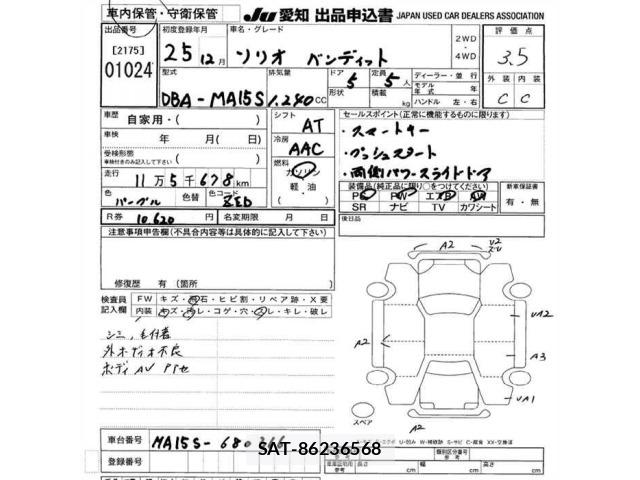 車内保管・守衛保管
JU 愛知 出品申込書 JAPAN USED CAR DEALERS ASSOCIATION
出品番号
[2175]
01024
初度登録年月
25年12月
車名・グレード
ソリオ バンディット
2WD
4WD
評価点
3.5
型式
DBA-MA15S
排気量
1.240 CC
ドア
5
形状
定員
5人
積載
kg
ディーラー・並行
モデル年式 年
ハンドル 左・右
外装 内装
C C
車歴
自家用・( )
車検
年 月( 日)
受検形態
車検付きのみ記入して下さい
( )
走行
11万5千678km
色
パープル
色替
色コード
ZED
R券
10.620 円
名変期限 月 日
シフト
AT
冷房
AAC
燃料
ガソリン
軽・油
( )
セールスポイント(正常に機能するものに限り)
・スマートキー
・プッシュスタート
・両側パワースライドドア
装備品(純正品に限り○をつけてください)
PS PW エアB AW
SR ナビ TV カワシート
新車保証書
有・無
後日品
注意事項申告欄(不具合内容等は具体的に記入して下さい)
修復歴 有(箇所 )
検査員記入欄
FW キズ・飛石・ヒビ割・リペア跡・X要
内装 キズ・汚レ・コゲ・穴・スレ・キレ・破レ
シミ、毛付着
外オーディオ不良
ボディAV
A2
U2
A2
UA2
A3
UA1
A2
スペア
車台番号
MA15S-680
登録番号
SAT-86236568
類別区分番号
参考
長さ cm 幅 cm 高さ cm